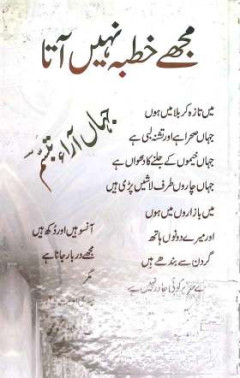 مجھے خطبہ نہیں آتا
جہاں آراء تبسّم
میں تازہ کربلا میں ہوں
جہاں صحرا ہے اور تشنہ لبی ہے
جہاں خیموں کے جلنے کا دھواں ہے
جہاں چاروں طرف لاشیں پڑی ہیں
میں بازاروں میں ہوں
اور میرے دونوں ہاتھ
گردن سے بندھے ہیں
کوئی چادر نہیں ہے
آنسو ہیں اور دکھ ہیں
مجھے دربار جانا ہے
مگر